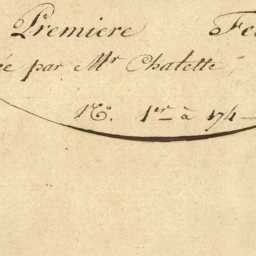 Premiere Fe
ée par Mr Chalette
No. 1er à 174